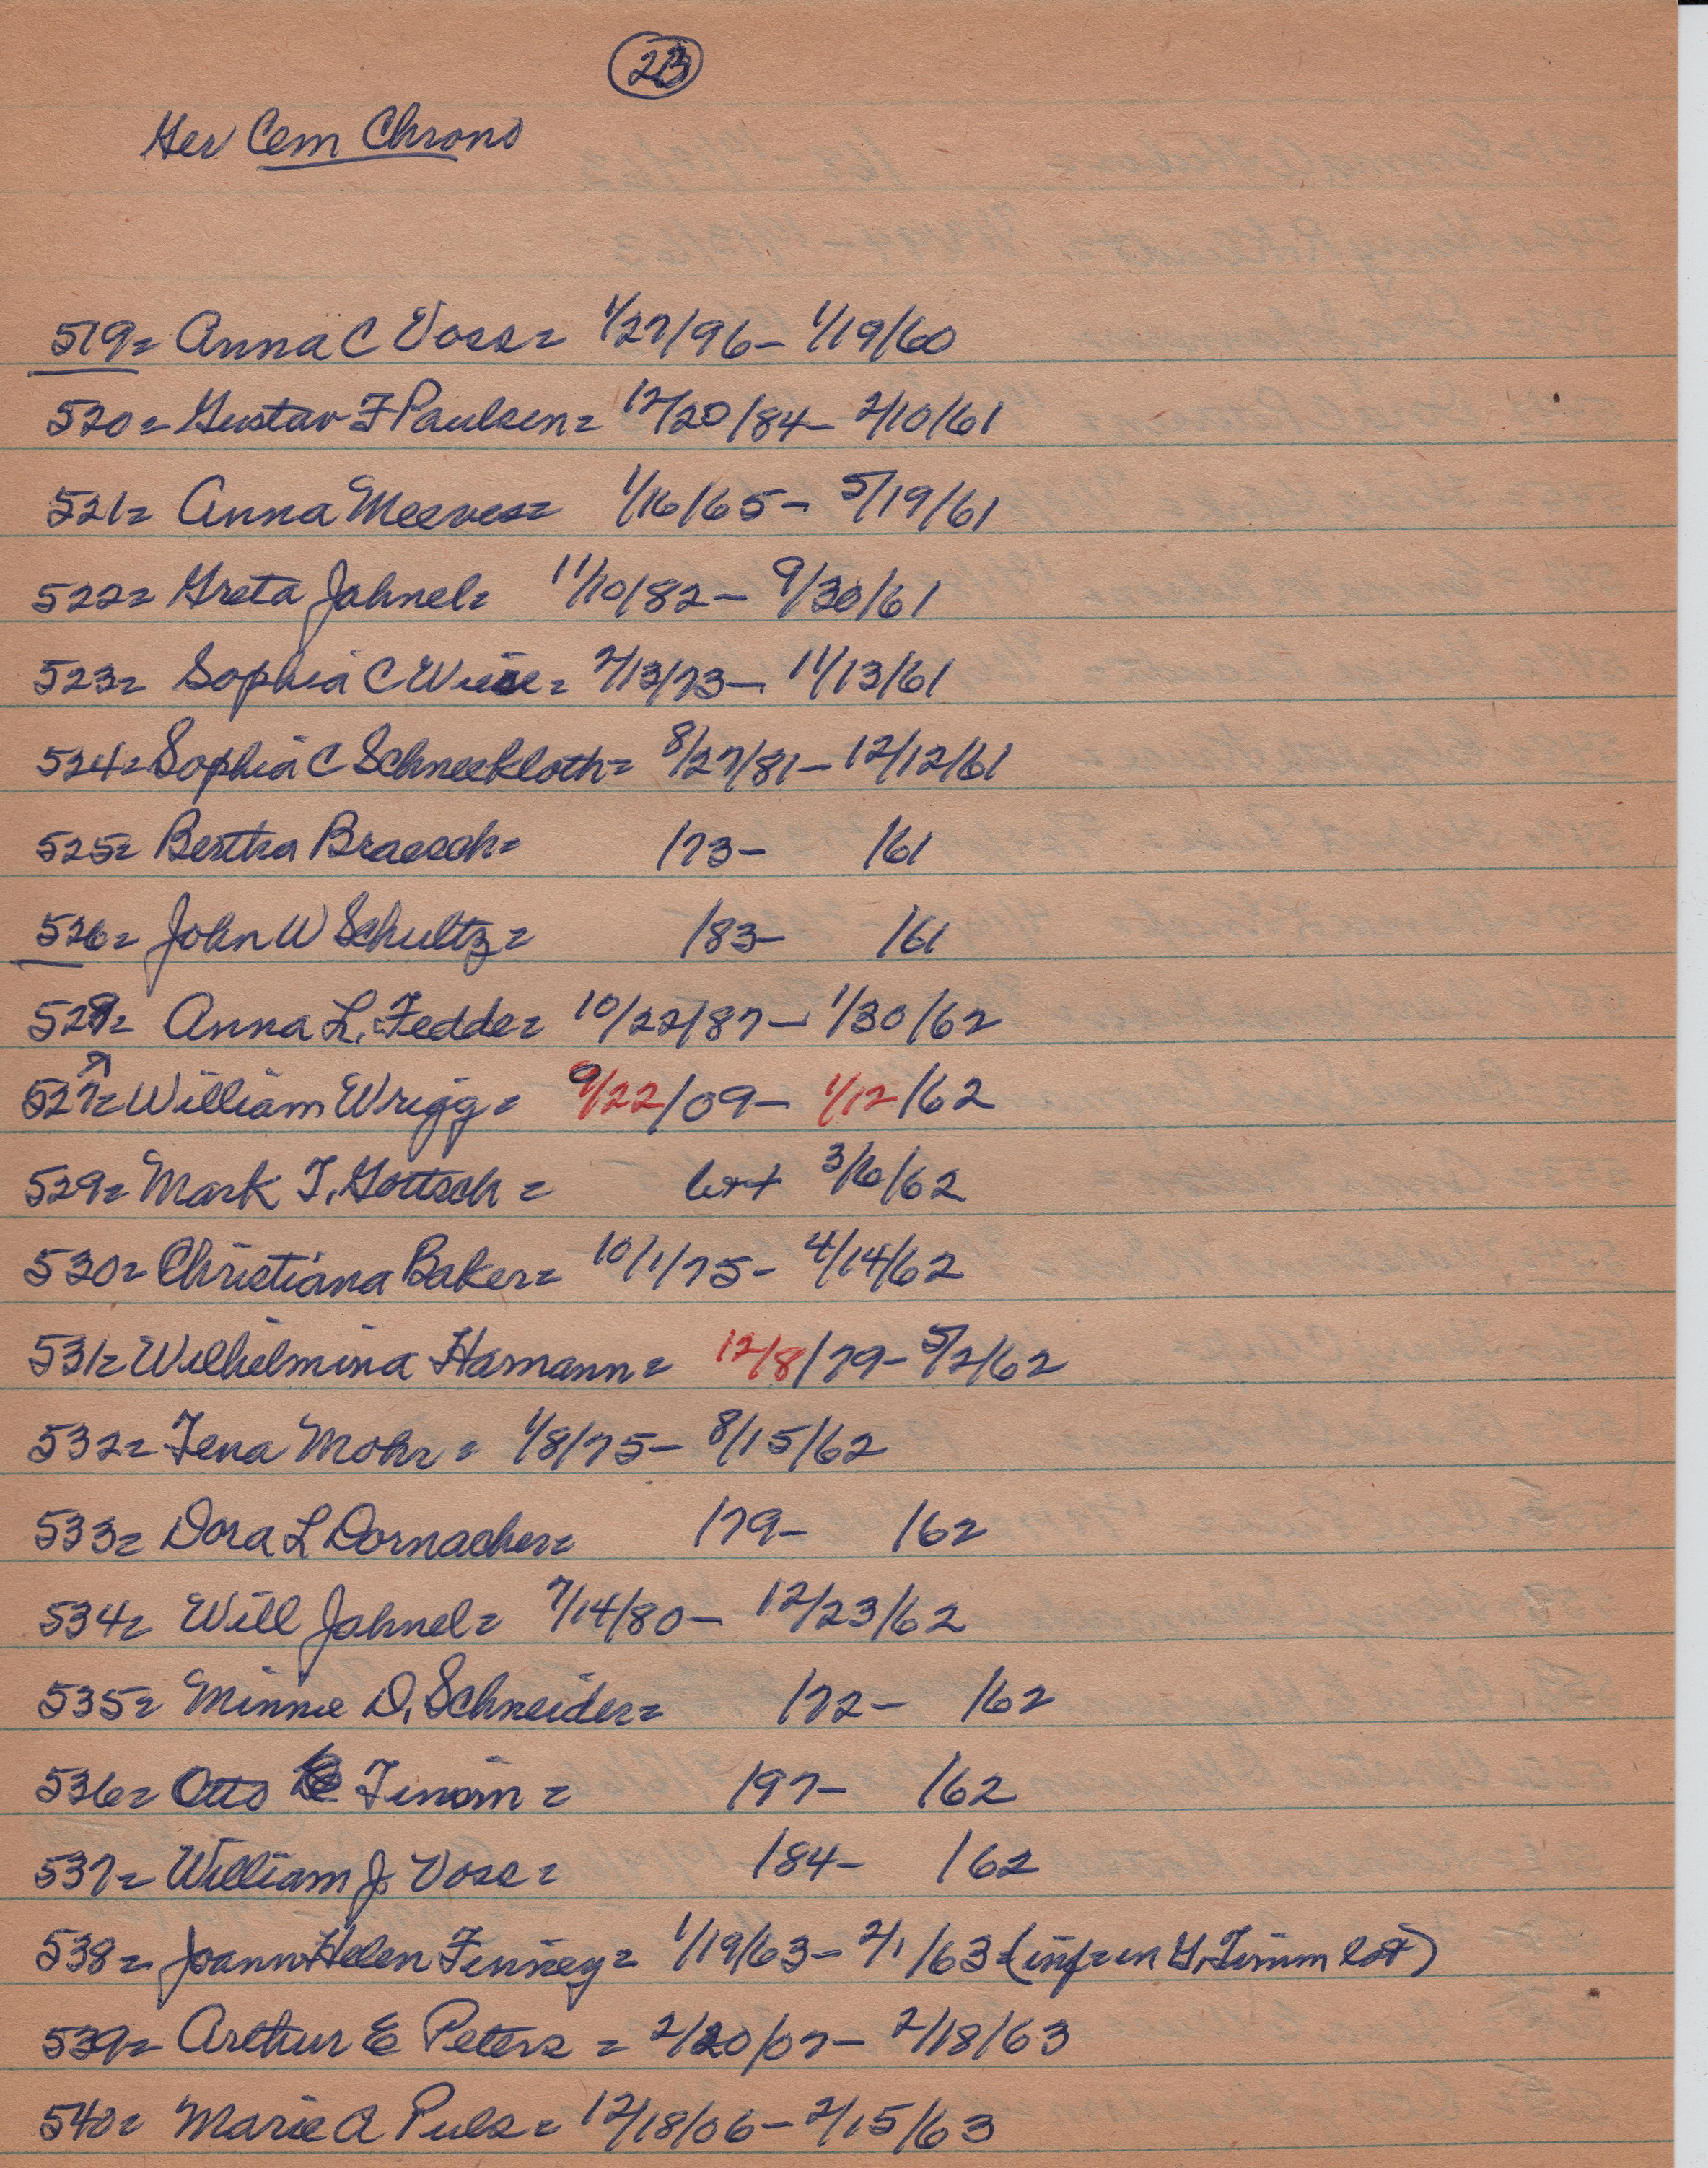 23
Ger Cem Chrono
519= Anna C Voss= 1/27/96- 1/19/60
520= Gustav F Paulsen= 12/20/84- 2/10/61
521= Anna Meeves= 1/16/65- 5/19/61
522= Greta Jahnel= 11/10/82- 9/30/61
523= Sophia C Wiese= 2/13/73- 11/13/61
524= Sophia C Schneekloth= 8/27/81- 12/12/61
525= Bertha Braesch= /73- /61
526= John W Schultz= /83- /61
528= Anna L. Fedde= 10/22/87- 1/30/62
527= William Wrigg= 9/22/09- 1/12/62
529= Mark T. Gottsch= 3/6/62
530= Christiana Baker= 10/1/75- 4/14/62
531= Wilhelmina Hamann= 12/8/79- 5/2/62
532= Tena Mohr= 1/8/75- 8/15/62
533= Dora L Dornacher= /79- /62
534= Will Jahnel= 7/14/80- 12/23/62
535= Minnie D. Schneider= /72- /62
536= Otto Timm= /97- /62
537= William J. Voss= /84- /62
538= Joann Helen Finney= 1/19/63- 2/1/63 (inf=in G. Timm lot)
539= Arthur E Peters= 2/20/07- 2/18/63
540= Marie A Puls= 12/18/06- 2/15/63